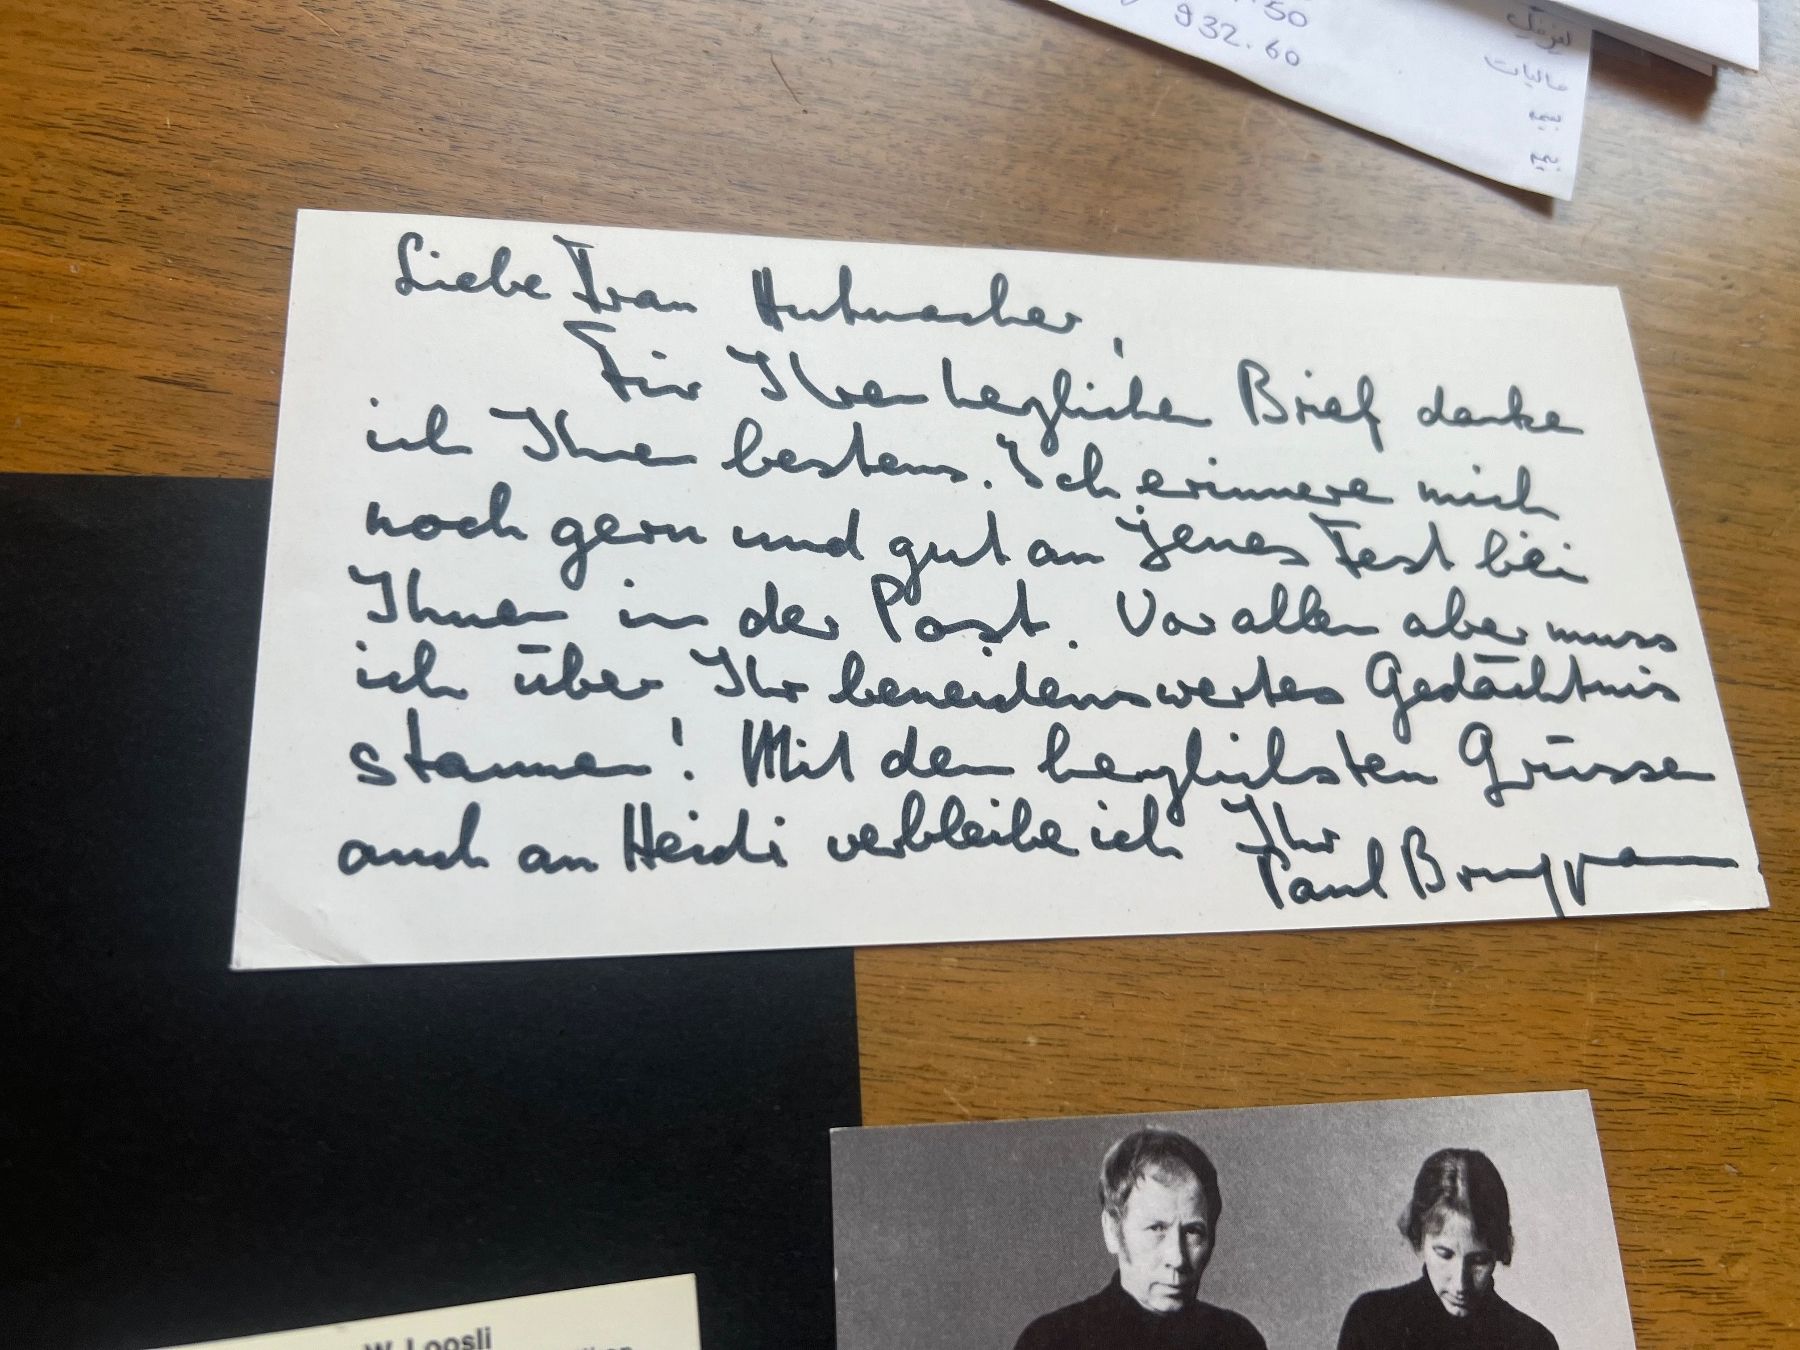 50
932.60
مالیات
Liebe Frau Hutmacher,
Für Ihren herzlichen Brief danke
ich Ihnen bestens. Ich erinnere mich
noch gern und gut an jenes Fest bei
Ihnen in der Post. Vor allem aber muss
ich über Ihr beneidenswertes Gedächtnis
staunen! Mit den herzlichsten Grüssen
auch an Heidi verbleibe ich Ihr
Paul Bruggmann
W. Loosli